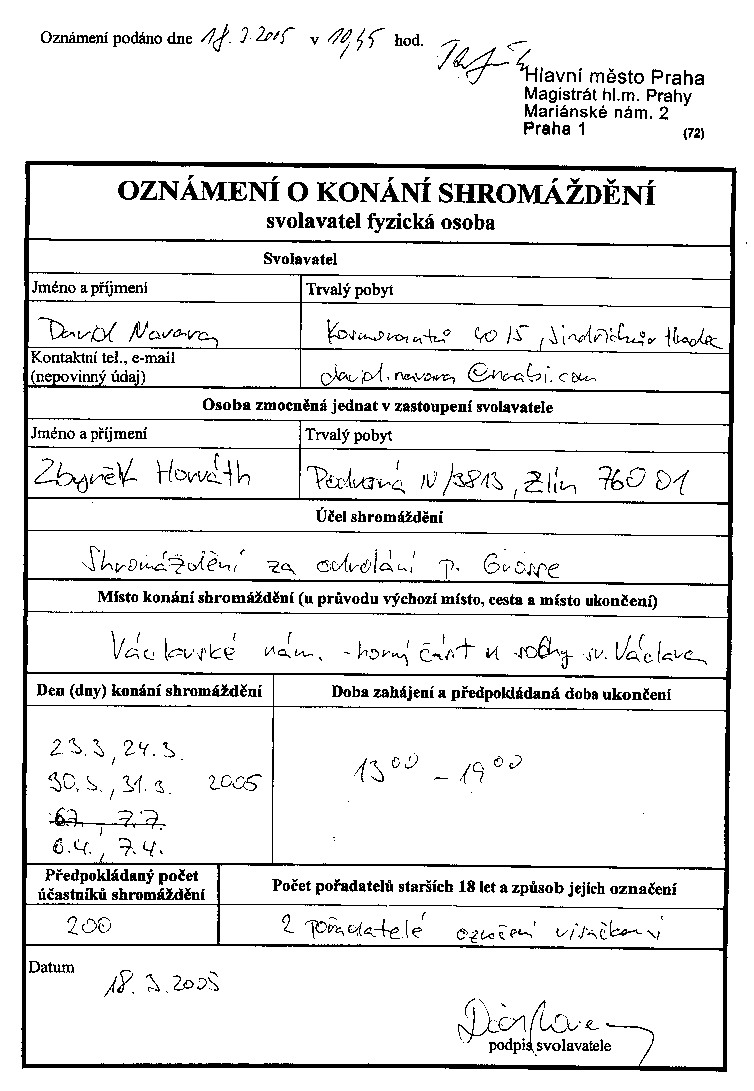 Oznámení podáno dne 18.3.2005 v 10,45 hod.
Hlavní město Praha
Magistrát hl.m. Prahy
Mariánské nám. 2
Praha 1 (72)
OZNÁMENÍ O KONÁNÍ SHROMÁŽDĚNÍ
svolavatel fyzická osoba
Svolavatel
Jméno a příjmení Trvalý pobyt
David Navara Kosmonautů 40/5, Jindřichův Hradec
Kontaktní tel., e-mail
(nepovinný údaj) david.navara@
Osoba zmocněná jednat v zastoupení svolavatele
Jméno a příjmení Trvalý pobyt
Zbyněk Horváth IV/3813, Zlín 760 01
Účel shromáždění
Shromáždění za odvolání p. Grosse
Místo konání shromáždění (u průvodu výchozí místo, cesta a místo ukončení)
Václavské nám. - horní část u sochy sv. Václava
Den (dny) konání shromáždění Doba zahájení a předpokládaná doba ukončení
23.3, 24.3.
30.3., 31.3. 2005 13 00 - 19 00
6.4., 7.4.
Předpokládaný počet
účastníků shromáždění Počet pořadatelů starších 18 let a způsob jejich označení
200 2 pořadatelé označení visačkami
Datum
18.3.2005
podpis svolavatele